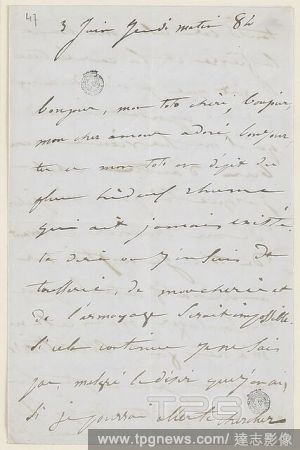 47
3 Juin Jeudi matin 8h
Bonjour, mon toto chéri, bonjour
mon cher amour adoré, bonjour
tu es mon toto en dépit du
plus hideux rhume
qui ait jamais existé
te dire où j'en suis de
tousserie, de moucherie et
de larmoyage serait impossible
si cela continue je ne sais
pas, malgré le désir que j'en ai,
si je pourrai aller te chercher
TPG
www.tpgnews.com/達志影像